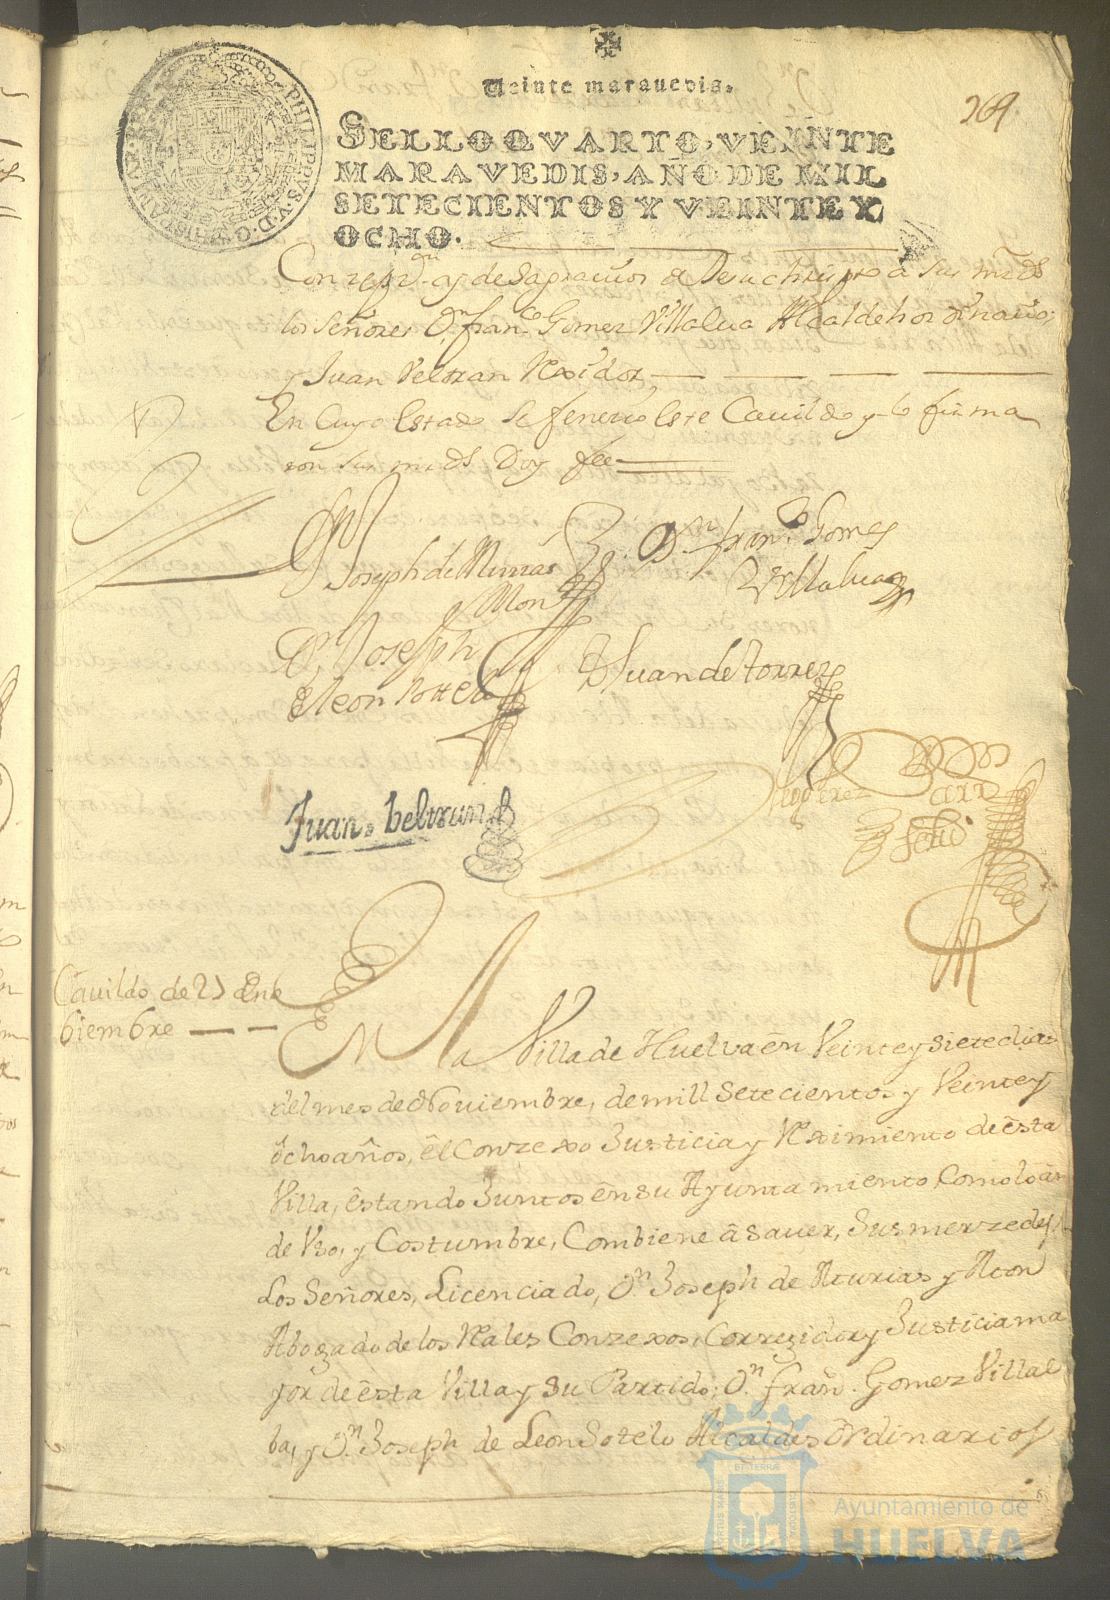 Veinte maravedis.
269
SELLO QVARTO, VEINTE
MARAVEDIS, AÑO DE MIL
SETECIENTOS Y VEINTE Y
OCHO.
PHILIPPVS V D G HISPANIAR
los Señores Dn. franco. Gomez Villalua Alcalde hordinario,
y Juan Veltran Rexidor
En Cuyo Estado Se feneció Este Cauildo y lo firma
ron sus mrds Doy fee
Joseph de
Dn. franco. Gomes
Villalua
Dn. Joseph
de Leon Sotelo
Juan de Torres
Juan. beltran
Cauildo de 27 de No
biembre
En la Villa de Huelva ên Veinte y siete dias
del mes de Noviembre, de mill Setecientos y Veinte y
ôcho años, êl Conzexo Justicia y Reximiento de êsta
Villa, êstando Juntos ên su Ayuntamiento Como lo àn
de Vso, y Costumbre, Combiene â sauer, Sus merzedes
Los Señores, Licenciado, Dn. Joseph de Asturias y Mon
Abogado de los Reales Conzexos, Correxidor y Justicia ma
yor de êsta Villa y su Partido; Dn. frañ. Gomez Villal
ba, y Dn. Joseph de Leon Sotelo Alcaldes Ordinarios
Ayuntamiento de
HUELVA